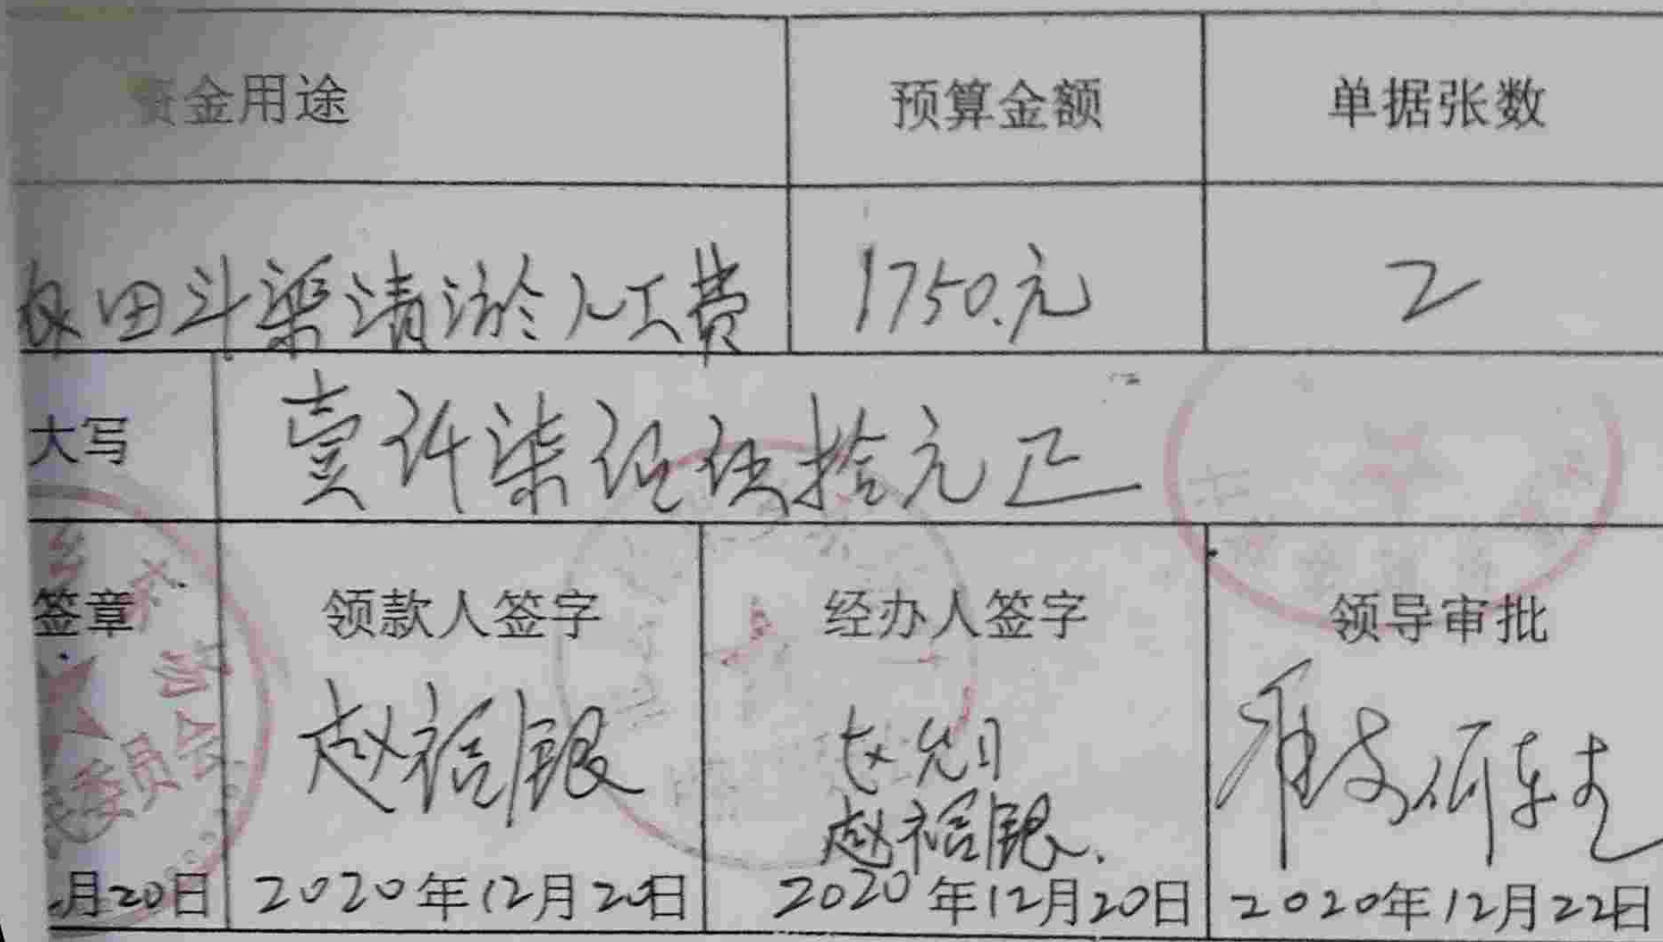 资金用途 预算金额 单据张数
农田斗渠清淤人工费 1750.元 2
大写 壹仟柒佰伍拾元正
签章 领款人签字 经办人签字 领导审批
委员会
赵褔银
赵褔银.
月20日 2020年12月20日 2020年12月20日 2020年12月22日